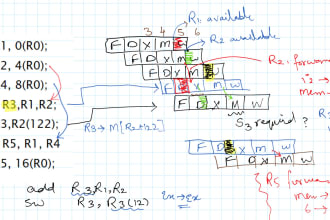 3 4 5 6
R1: available
R2 available
1, 0(R0);
F D X M
2, 4(R0);
F D X M
4, 8(R0);
F D X M W
R2: forwar
i2 →
mem-
R3,R1,R2;
F D X M W
3,R2(122);
R3→ M[R2+122]
F D X M W
S3 required ?
R5, R1, R4
5, 16(R0);
F D X M W
F D X M W
add R3,R1,R2
sw R3, R3(12)
Ex→Ex
R5 forwar
mem→
6 →